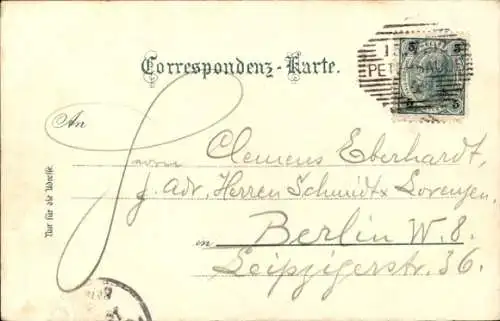 Correspondenz-Karte.
An
Herrn Clemens Eberhardt,
p. adr. Herren Schmidt & Lorenzen,
in Berlin W. 8.
Leipzigerstr. 36.
Nur für die Adresse.
5 5
5 5